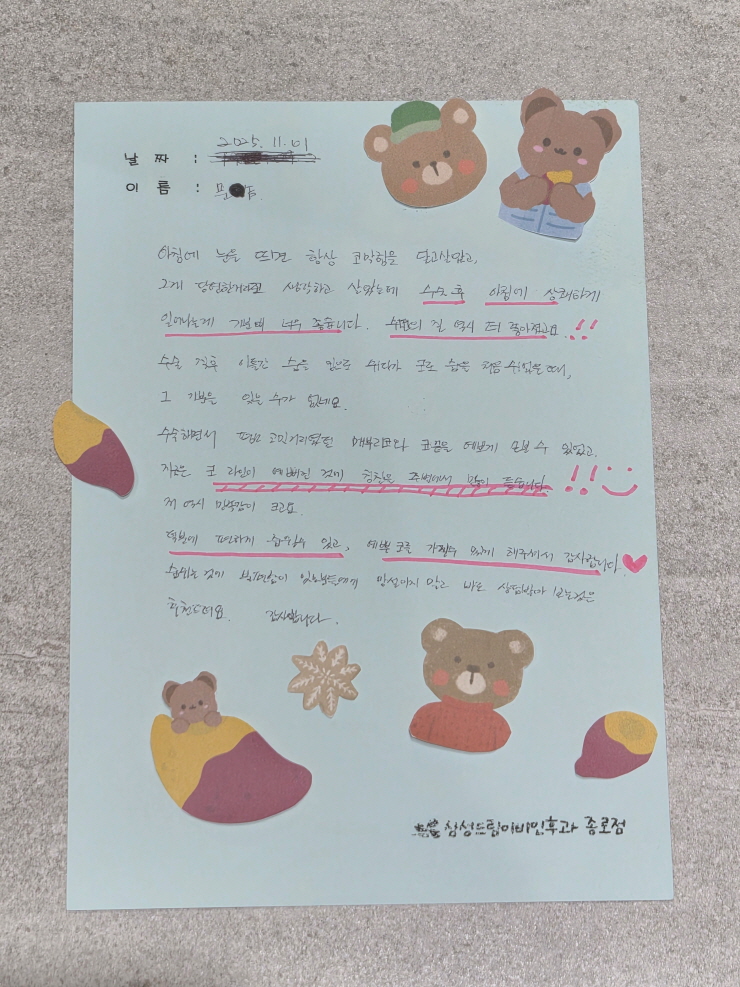 날 짜 : 2025. 11. 01
이 름 : 문
아침에 눈을 뜨면 항상 코막힘을 달고살았고,
그게 당연한거라고 생각하고 살았는데 수술 후 아침에 상쾌하게
일어나는게 기분이 너무 좋습니다. 수면의 질 역시 더 좋아졌고요!!
수술 직후 이틀간 숨을 입으로 쉬다가 코로 숨을 처음 쉬었을 때,
그 기분을 잊을 수가 없네요.
수술하면서 평소 고민거리였던 매부리코와 코끝을 예쁘게 할 수 있었고,
지금은 코 라인이 예뻐진 것에 칭찬을 주변에서 많이 듣습니다!!
저 역시 만족감이 크고요.
덕분에 편하게 숨쉴수 있고, 예쁜 코를 가질수 있게 해주셔서 감사합니다.
숨쉬는 것에 불편함이 있는분들에게 망설이지 말고 바로 상담받아 보는것을
추천드려요. 감사합니다.
숨이비인후과 종로점